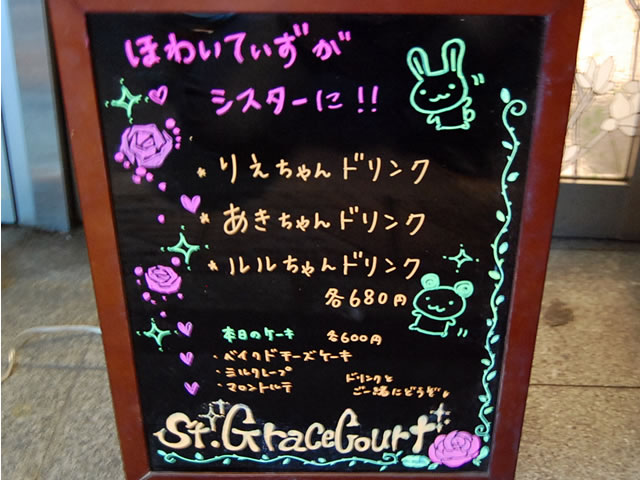 ほわいてぃずが
シスターに!!
* りえちゃんドリンク
* あきちゃんドリンク
* ルルちゃんドリンク
各680円
本日のケーキ 各600円
・ベイクドチーズケーキ
・ミルクレープ
・マロントルテ
ドリンクと
ご一緒にどうぞ♪
St.GraceCourt